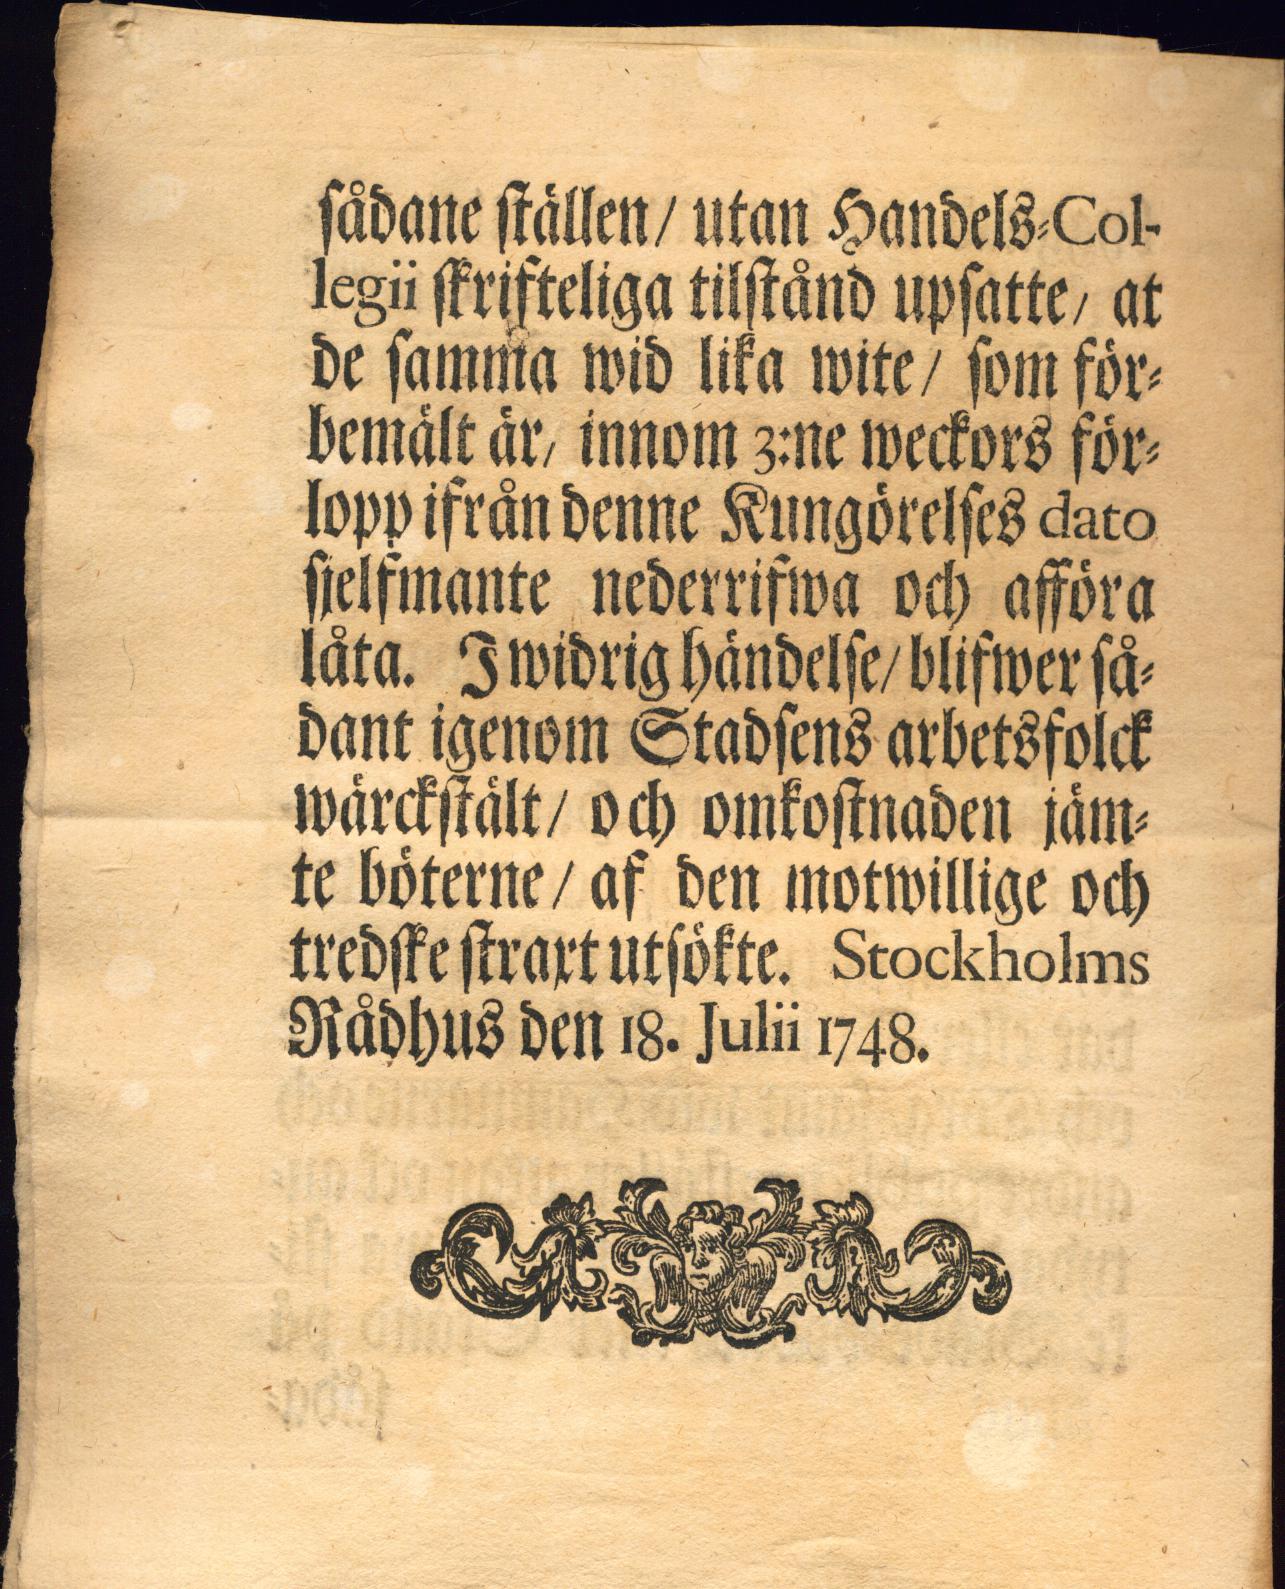 sådane ställen/ utan Handels-Col-
legii skrifteliga tilstånd upsatte/ at
de samma wid lika wite/ som för-
bemält är/ innom 3:ne weckors för-
lopp ifrån denne Kungörelses dato
sjelfmante nederrifwa och afföra
låta. I widrig händelse/ blifwer så-
dant igenom Stadsens arbetsfolck
wärckstält/ och omkostnaden jäm-
te böterne/ af den motwillige och
tredske straxt utsökte. Stockholms
Rådhus den 18. Julii 1748.